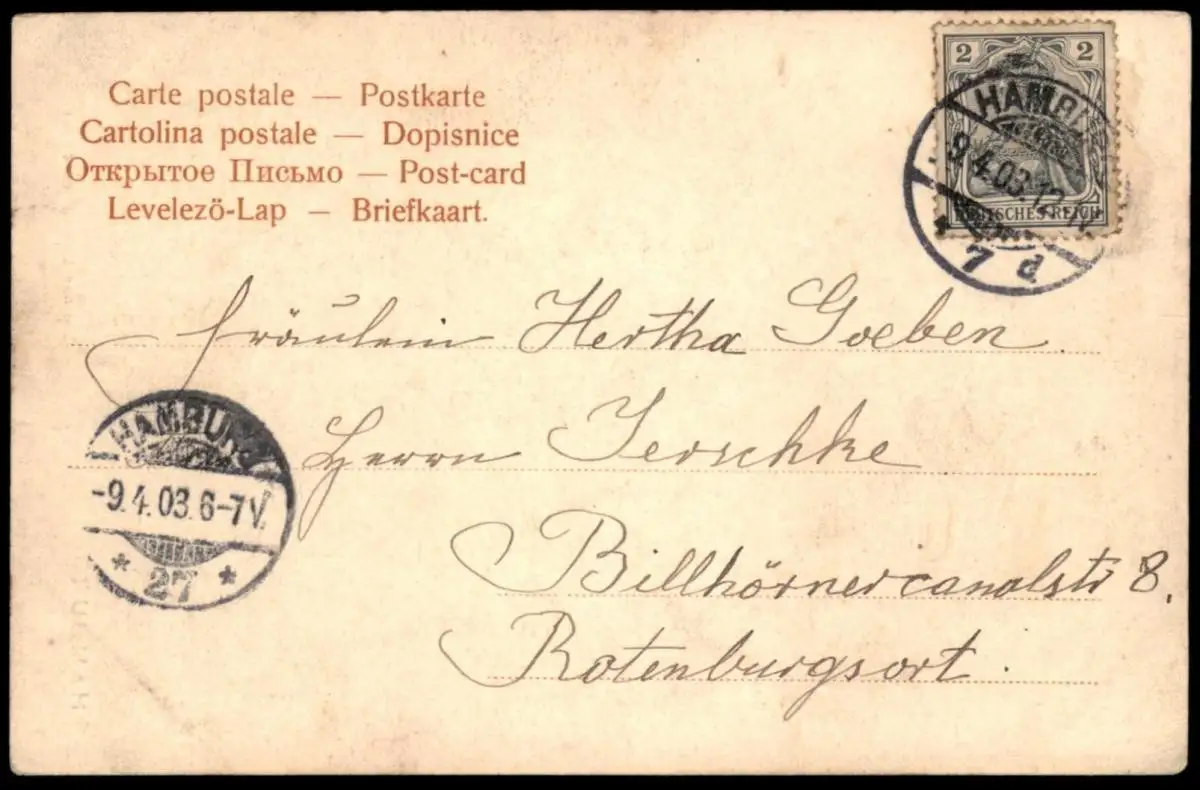 Carte postale — Postkarte
Cartolina postale — Dopisnice
Открытое Письмо — Post-card
Levelezö-Lap — Briefkaart.
2 2
HAMB
9.4.03.12
DEUTSCHES REICH
* 7 d
Fräulein Hertha Goeben
Herrn Jerschke
HAMBURG
-9.4.03.6-7V.
* 27 *
Billhörnercanalstr 8.
Rotenburgsort.